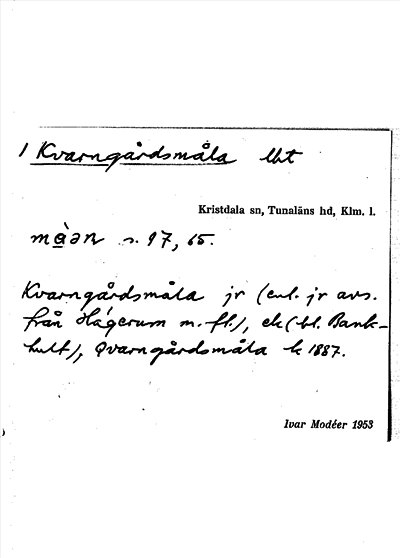 1 Kvarngårdsmåla lht
Kristdala sn, Tunaläns hd, Klm. l.
s. 97, 65.
Kvarngårdsmåla jr (enl. jr avs.
från Hagerum m. fl.), ek (bl. Bank-
hult), Qvarngårdsmåla k 1887.
Ivar Modéer 1953